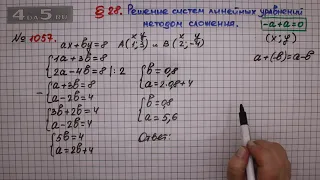 4 O 5
§ 28. Решение систем линейных уравнений
методом сложения.
-a+a=0
№ 1057.
ax+by=8 A(1;3) и B(2;-4)
x y x y
(x; y)
{1a+3b=8
{2a-4b=8 |:2
{a+3b=8
{a-2b=4
{3b+2b=4
{a-2b=4
{5b=4
{a=2b+4
{b=0,8
{a=2·0,8+4
{b=0,8
{a=5,6
Ответ:
a+(-b)=a-b